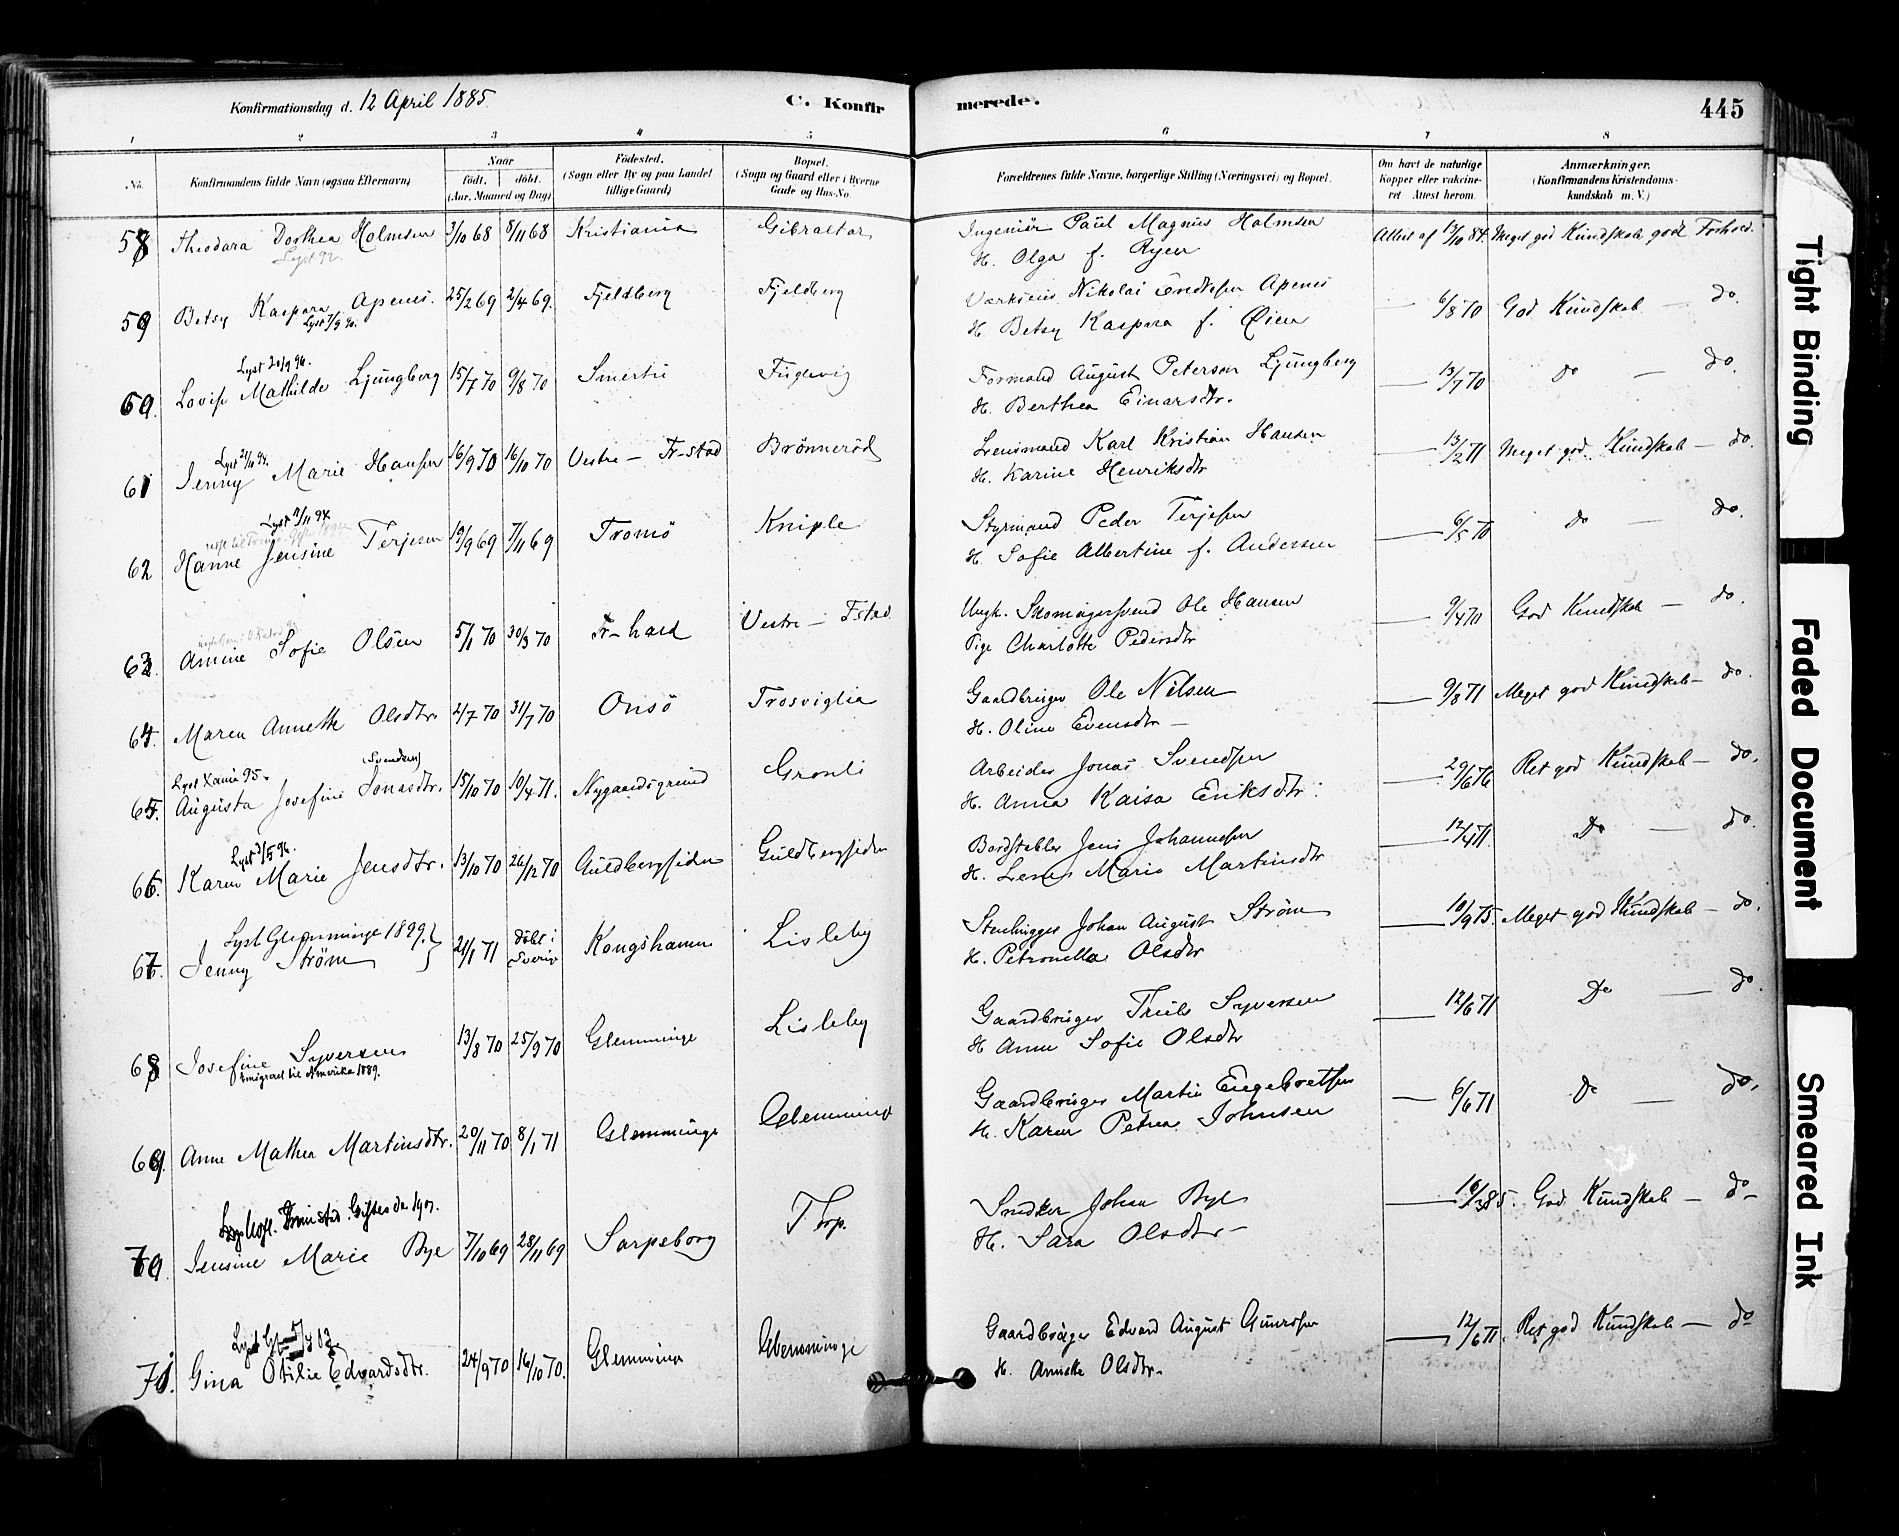 Konfirmationsdag d. 12 April 1885.
C. Konfirmerede.
445
1 2 3 4 5 6 7 8
No.
Konfirmandens fulde Navn (ogsaa Efternavn)
Naar
født, døbt.
(Aar, Maaned og Dag)
Fødested.
(Sogn eller By og paa Landet
tillige Gaard)
Bopæl.
(Sogn og Gaard eller i Byerne
Gade og Hus-No
Forældrenes fulde Navne, borgerlige Stilling (Næringsvei) og Bopæl.
Om havt de naturlige
Kopper eller vaccine-
ret Attest herom.
Anmærkninger.
(Konfirmandens Kristendoms-
kundskab m. V.)
58 Theodara Dorthea Holmsen 3/10 68 8/11 68 Kristiania Gibraltar Ingeniør Paul Magnus Holmsen Attest af 13/10 84. Meget god Kundskab god Forhold.
Lyst 92.
H. Olga f. Ryen
59 Betsy Kaspara Apenes. 25/2 69 2/4 69. Fjeldberg Fjeldberg Nikolai Endresen Apenes — 6/8 70 God Kundskab — do.
H. Betsy Kaspara f. Øien
Lyst 20/9 96.
60. Lovise Mathilde Ljungberg 15/7 70 9/8 70 Smertu Fuglevig Formand August Peterson Ljungberg — 13/7 70 do — do.
H. Berthea Einarsdtr.
61 Jenny Marie Hansen 16/9 70 16/10 70 Vestre — Fr-stad Brønnerød Lensmand Karl Kristian Hansen — 13/2 71 Meget god Kundskab — do.
H. Karine Henriksdtr
Lyst 11/11 94.
62 Hanne Jensine Terjesen 19/9 69 7/11 69 Tromø Kniple Styrmand Peder Terjesen — 6/5 70 do — do.
H. Sofie Albertine f. Andersen
63 Amine Sofie Olsen 5/1 70 30/3 70 Fr-hald Vestre — Fstad Ungk. Skomagersvend Ole Hansen — 9/4 70 God Kundskab — do.
Pige Charlotte Pedersdtr
64. Maren Annette Olsdtr. 2/7 70 31/7 70 Onsø Trosviglia Gaardbruger Ole Nilsen — 9/8 71 Meget god Kundskab — do.
H. Oline Evensdtr —
Lyst Xania 95. (Svendsen)
65. Augusta Josefine Jonasdtr. 15/10 70 10/4 71. Nygaardsgrund Grønli Arbeider Jonas Svendsen — 29/6 76 Ret god Kundskab — do.
H. Anna Kaisa Eriksdtr.
Lyst 3/5 96.
66. Karen Marie Jensdtr. 13/10 70 26/12 70 Guldbergsiden Guldbergsiden Bordstabler Jens Johannesen — 12/4 71. Do — do.
H. Lene Marie Martinsdtr
Lyst Glemminge 1899.
67. Jenny Strøm 21/1 71 døbt i Sverig Kongshamn Lisleby Stenhugger Johan August Strøm — 10/9 75. Meget god Kundskab — do.
H. Petronella Olsdtr
68 Josefine Syversen 13/8 70 25/9 70 Glemminge Lisleby Gaardbruger Truls Syversen — 12/6 71 Do — do.
Emigreret til Amerika 1889.
H Anne Sofie Olsdtr
69. Anne Mathea Martinsdtr. 20/11 70 8/1 71 Glemminge Glemminge Gaardbruger Martin Engebretsen — 6/6 71 Do — do.
H. Karen Petrea Johnsen
70. Jensine Marie Bye 7/10 69 28/11 69 Sarpsborg Thorp. Snedker Johan Bye — 16/3 85. God Kundskab — do —
H. Sara Olsdtr —
71. Gina Otilie Edvardsdtr. 24/9 70 16/10 70. Glemminge Glemminge Gaardbruger Edvard August Gundersen — 12/6 71. Ret god Kundskab — do
H. Annette Olsdtr.
Tight Binding
Faded Document
Smeared Ink